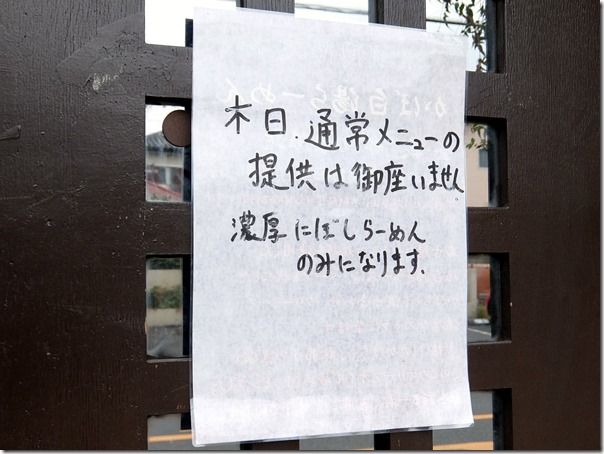 本日、通常メニューの
提供は御座いません
濃厚にぼしらーめん
のみになります。